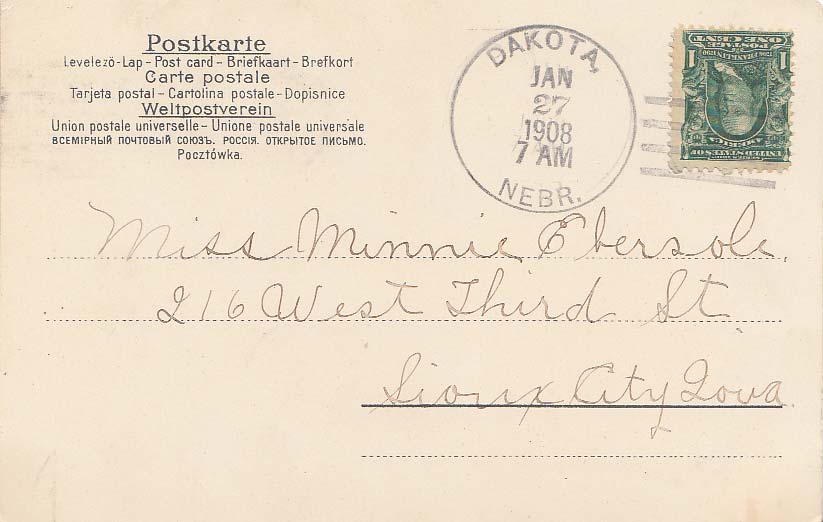 Postkarte
Levelező-Lap - Post card - Briefkaart - Brefkort
Carte postale
Tarjeta postal - Cartolina postale - Dopisnice
Weltpostverein
Union postale universelle - Unione postale universale
ВСЕМІРНЫЙ ПОЧТОВЫЙ СОЮЗЪ. РОССІЯ. ОТКРЫТОЕ ПИСЬМО.
Pocztówka.
DAKOTA,
JAN
27
1908
7 AM
NEBR.
1 1
POSTAGE
ONE CENT
Miss Minnie Ebersole.
216 West Third St
Sioux City Iowa